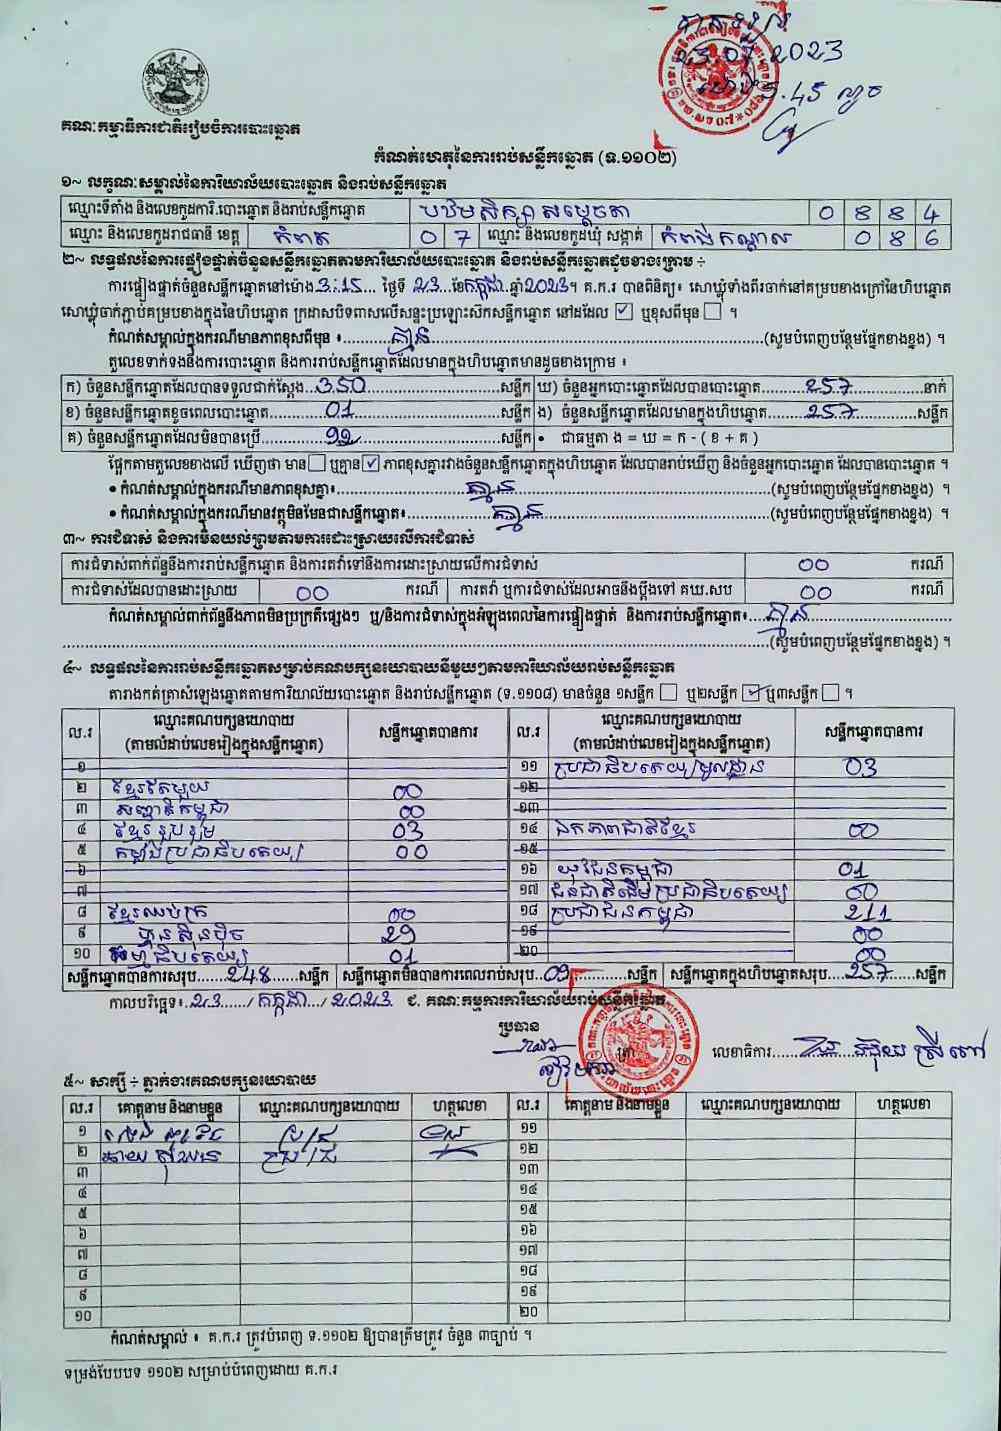 បានទទួល
23.07.2023
ម៉ោង 5.45 ល្ងាច
គណៈកម្មាធិការជាតិរៀបចំការបោះឆ្នោត
កំណត់ហេតុនៃការរាប់សន្លឹកឆ្នោត (ទ.១១០២)
១~ លក្ខណៈសម្គាល់នៃការិយាល័យបោះឆ្នោត និងរាប់សន្លឹកឆ្នោត
ឈ្មោះទីតាំង និងលេខកូដការិ.បោះឆ្នោត និងរាប់សន្លឹកឆ្នោត បឋមសិក្សាសម្តេចតា 0 8 8 4
ឈ្មោះ និងលេខកូដរាជធានី ខេត្ត កំពត 0 7 ឈ្មោះ និងលេខកូដឃុំ សង្កាត់ កំពង់កណ្តាល 0 8 6
២~ លទ្ធផលនៃការផ្ទៀងផ្ទាត់ចំនួនសន្លឹកឆ្នោតតាមការិយាល័យបោះឆ្នោត និងរាប់សន្លឹកឆ្នោតដូចខាងក្រោម ÷
ការផ្ទៀងផ្ទាត់ចំនួនសន្លឹកឆ្នោតនៅម៉ោង 3:15 ថ្ងៃទី 23 ខែកក្កដា ឆ្នាំ2023។ គ.ក.រ បានពិនិត្យ៖ សោឃ្លុំទាំងពីរចាក់នៅគម្របខាងក្រៅនៃហិបឆ្នោត
សោឃ្លុំចាក់ភ្ជាប់គម្របខាងក្នុងនៃហិបឆ្នោត ក្រដាសបិទពាសលើសន្ទះប្រឡោះស៊កសន្លឹកឆ្នោត នៅដដែល ☑ ឬខុសពីមុន ☐ ។
កំណត់សម្គាល់ក្នុងករណីមានភាពខុសពីមុន ៖ គ្មាន (សូមបំពេញបន្ថែមផ្នែកខាងខ្នង) ។
តួលេខទាក់ទងនឹងការបោះឆ្នោត និងការរាប់សន្លឹកឆ្នោតដែលមានក្នុងហិបឆ្នោតមានដូចខាងក្រោម ៖
ក) ចំនួនសន្លឹកឆ្នោតដែលបានទទួលជាក់ស្តែង 350 សន្លឹក ឃ) ចំនួនអ្នកបោះឆ្នោតដែលបានបោះឆ្នោត 257 នាក់
ខ) ចំនួនសន្លឹកឆ្នោតខូចពេលបោះឆ្នោត 01 សន្លឹក ង) ចំនួនសន្លឹកឆ្នោតដែលមានក្នុងហិបឆ្នោត 257 សន្លឹក
គ) ចំនួនសន្លឹកឆ្នោតដែលមិនបានប្រើ 92 សន្លឹក • ជាធម្មតា ង = ឃ = ក - ( ខ + គ )
ផ្អែកតាមតួលេខខាងលើ ឃើញថា មាន ☐ ឬគ្មាន ☑ ភាពខុសគ្នារវាងចំនួនសន្លឹកឆ្នោតក្នុងហិបឆ្នោត ដែលបានរាប់ឃើញ និងចំនួនអ្នកបោះឆ្នោត ដែលបានបោះឆ្នោត ។
• កំណត់សម្គាល់ក្នុងករណីមានភាពខុសគ្នា៖ គ្មាន (សូមបំពេញបន្ថែមផ្នែកខាងខ្នង) ។
• កំណត់សម្គាល់ក្នុងករណីមានវត្ថុមិនមែនជាសន្លឹកឆ្នោត៖ គ្មាន (សូមបំពេញបន្ថែមផ្នែកខាងខ្នង) ។
៣~ ការជំទាស់ និងការមិនយល់ព្រមតាមការដោះស្រាយលើការជំទាស់
ការជំទាស់ពាក់ព័ន្ធនឹងការរាប់សន្លឹកឆ្នោត និងការតវ៉ាទៅនឹងការដោះស្រាយលើការជំទាស់ 00 ករណី
ការជំទាស់ដែលបានដោះស្រាយ 00 ករណី ការតវ៉ា ឬការជំទាស់ដែលអាចនឹងប្តឹងទៅ គឃ.សប 00 ករណី
កំណត់សម្គាល់ពាក់ព័ន្ធនឹងភាពមិនប្រក្រតីផ្សេងៗ ឬ/និងការជំទាស់ក្នុងអំឡុងពេលនៃការផ្ទៀងផ្ទាត់ និងការរាប់សន្លឹកឆ្នោត៖ គ្មាន
(សូមបំពេញបន្ថែមផ្នែកខាងខ្នង) ។
៤~ លទ្ធផលនៃការរាប់សន្លឹកឆ្នោតសម្រាប់គណបក្សនយោបាយនីមួយៗតាមការិយាល័យរាប់សន្លឹកឆ្នោត
តារាងកត់ត្រាសំឡេងឆ្នោតតាមការិយាល័យបោះឆ្នោត និងរាប់សន្លឹកឆ្នោត (ទ.១១០៨) មានចំនួន ១សន្លឹក ☐ ឬ២សន្លឹក ☑ ឬ៣សន្លឹក ☐ ។
ល.រ ឈ្មោះគណបក្សនយោបាយ (តាមលំដាប់លេខរៀងក្នុងសន្លឹកឆ្នោត) សន្លឹកឆ្នោតបានការ ល.រ ឈ្មោះគណបក្សនយោបាយ (តាមលំដាប់លេខរៀងក្នុងសន្លឹកឆ្នោត) សន្លឹកឆ្នោតបានការ
១ ១១ ប្រជាធិបតេយ្យមូលដ្ឋាន 03
២ ខ្មែរតែមួយ 00 ១២
៣ សញ្ជាតិកម្ពុជា 00 ១៣
៤ ខ្មែររួបរួម 03 ១៤ ឯកភាពជាតិខ្មែរ 00
៥ កម្លាំងប្រជាធិបតេយ្យ 00 ១៥
៦ ១៦ យុវជនកម្ពុជា 01
៧ ១៧ ជនជាតិដើមប្រជាធិបតេយ្យ 00
៨ ខ្មែរឈប់ក្រ 00 ១៨ ប្រជាជនកម្ពុជា 211
៩ ហ្វ៊ុនស៊ិនប៉ិច 29 ១៩ 00
១០ ធម្មាធិបតេយ្យ 01 ២០ 00
សន្លឹកឆ្នោតបានការសរុប 248 សន្លឹក សន្លឹកឆ្នោតមិនបានការពេលរាប់សរុប 09 សន្លឹក សន្លឹកឆ្នោតក្នុងហិបឆ្នោតសរុប 257 សន្លឹក
កាលបរិច្ឆេទ៖ 23 / កក្កដា / 2023 ជ. គណៈកម្មការការិយាល័យរាប់សន្លឹកឆ្នោត
ប្រធាន
លេខាធិការ
៥~ សាក្សី ÷ ភ្នាក់ងារគណបក្សនយោបាយ
ល.រ គោត្តនាម និងនាមខ្លួន ឈ្មោះគណបក្សនយោបាយ ហត្ថលេខា ល.រ គោត្តនាម និងនាមខ្លួន ឈ្មោះគណបក្សនយោបាយ ហត្ថលេខា
១ ១១
២ ១២
៣ ១៣
៤ ១៤
៥ ១៥
៦ ១៦
៧ ១៧
៨ ១៨
៩ ១៩
១០ ២០
កំណត់សម្គាល់ ៖ គ.ក.រ ត្រូវបំពេញ ទ.១១០២ ឱ្យបានត្រឹមត្រូវ ចំនួន ៣ច្បាប់ ។
ទម្រង់បែបបទ ១១០២ សម្រាប់បំពេញដោយ គ.ក.រ